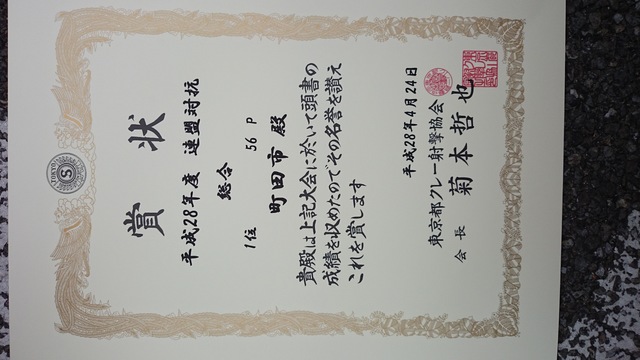 賞状
平成28年度 連盟対抗
総合
1位 56 P
町田市 殿
貴殿は上記大会に於いて頭書の
成績を収めたのでその名誉を讃え
これを賞します
平成28年4月24日
東京都クレー射撃協会
会長 菊本哲也